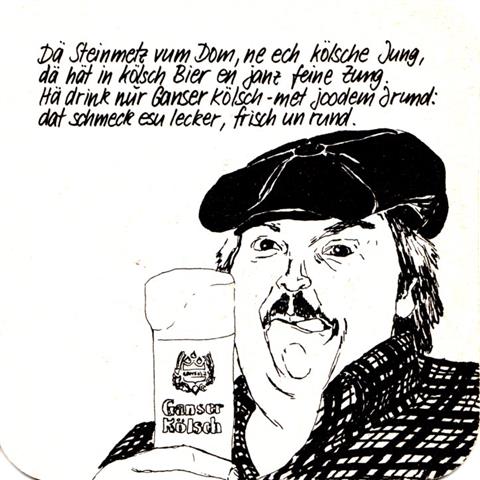 Dä Steinmetz vum Dom, ne ech kölsche Jung,
dä hät in kölsch Bier en janz feine Zung.
Hä drink nur Ganser Kölsch - met joodem Jrund:
dat schmeck esu lecker, frisch un rund.
GANSER
Ganser
Kölsch